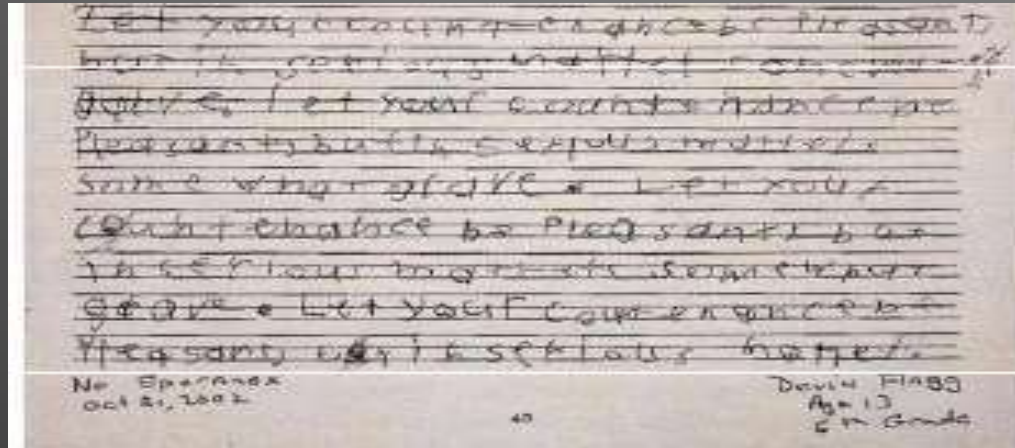 Let your countenance be Pleasant,
but in serious matter somewhat
grave. Let your countenance be
Pleasant, but in serious matters
some what grave. Let your
countenance be Pleasant, but
in serious matters somewhat
grave. Let your countenance be
Pleasant, in serious
Oct 21, 2002
Age 13
Grade